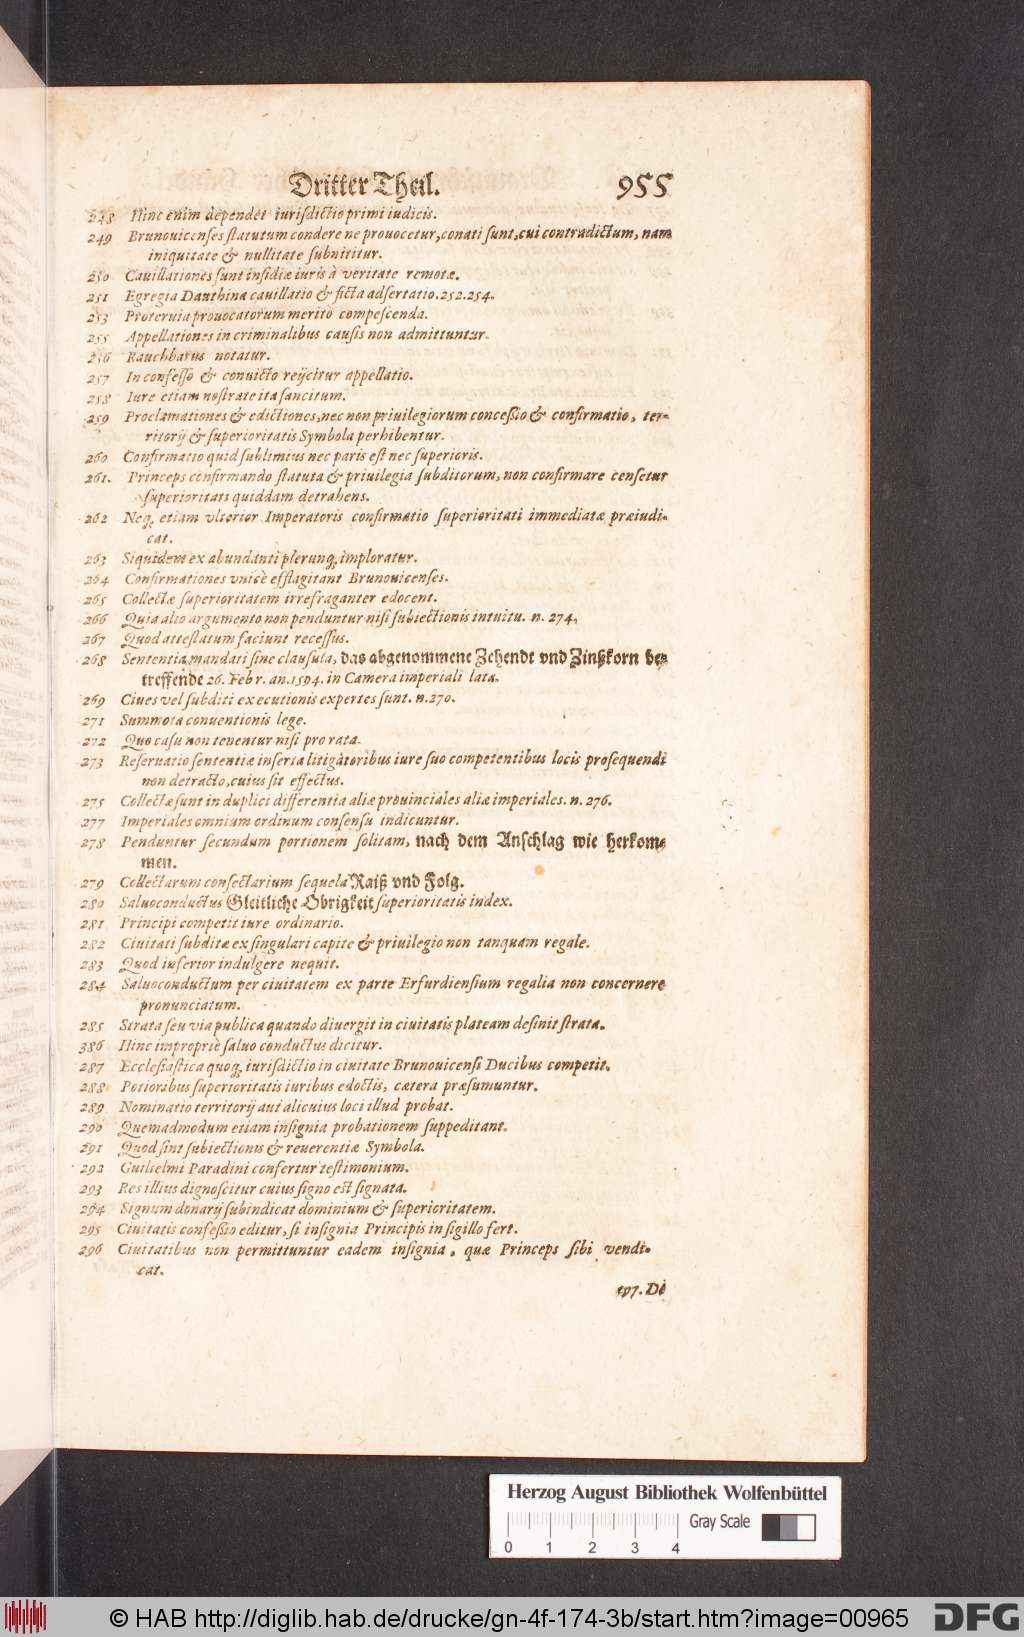 Dritter Theil. 955
248 Hinc enim dependet iurisdictio primi iudicis.
249 Brunouicenses statutum condere ne prouocetur, conati sunt, cui contradictum, nam
iniquitate & nullitate subnititur.
250 Cauillationes sunt insidiæ iuris à veritate remotæ.
251 Egregia Dauthina cauillatio & ficta adsertatio. 252. 254.
253 Proteruia prouocatorum meritò compescenda.
255 Appellationes in criminalibus causis non admittuntur.
256 Rauchbarus notatur.
257 In confesso & conuicto reijcitur appellatio.
258 Iure etiam nostrate ita sancitum.
259 Proclamationes & edictiones, nec non priuilegiorum concessio & confirmatio, ter-
ritorij & superioritatis Symbola perhibentur.
260 Confirmatio quid sublimius nec paris est nec superioris.
261. Princeps confirmando statuta & priuilegia subditorum, non confirmare censetur
superioritati quiddam detrahens.
262 Neq; etiam vlterior Imperatoris confirmatio superioritati immediatæ præiudi-
cat.
263 Siquidem ex abundanti plerunq; imploratur.
264 Confirmationes vnicè efflagitant Brunouicenses.
265 Collectæ superioritatem irrefraganter edocent.
266 Quia alio argumento non penduntur nisi subiectionis intuitu. n. 274.
267 Quod attestatum faciunt recessus.
268 Sententia mandati sine clausula, das abgenommene Zehendt vnd Zinßkorn be-
treffende 26. Febr. an. 1594. in Camera imperiali lata.
269 Ciues vel subditi executionis expertes sunt. n. 270.
271 Summota conuentionis lege.
272 Quo casu non tenentur nisi pro rata.
273 Reseruatio sententiæ inserta litigatoribus iure suo competentibus locis prosequendi
non detracto, cuius sit effectus.
275 Collectæ sunt in duplici differentia aliæ prouinciales aliæ imperiales. n. 276.
277 Imperiales omnium ordinum consensu indicuntur.
278 Penduntur secundum portionem solitam, nach dem Anschlag wie herkom-
men.
279 Collectarum consectarium sequela Raiß vnd Folg.
280 Saluoconductus Gleitliche Obrigkeit superioritatis index.
281 Principi competit iure ordinario.
282 Ciuitati subditæ ex singulari capite & priuilegio non tanquam regale.
283 Quod inferior indulgere nequit.
284 Saluoconductum per ciuitatem ex parte Erfurdiensium regalia non concernere
pronunciatum.
285 Strata seu via publica quando diuergit in ciuitatis plateam definit strata.
386 Hinc impropriè saluo conductus dicitur.
287 Ecclesiastica quoq; iurisdictio in ciuitate Brunouicensi Ducibus competit.
288 Potioribus superioritatis iuribus edoctis, cætera præsumuntur.
289 Nominatio territorij aut alicuius loci illud probat.
290 Quemadmodum etiam insignia probationem suppeditant.
291 Quod sint subiectionis & reuerentiæ Symbola.
292 Guilielmi Paradini confertur testimonium.
293 Res illius dignoscitur cuius signo est signata.
294 Signum donarij subindicat dominium & superioritatem.
295 Ciuitatis confessio editur, si insignia Principis in sigillo fert.
296 Ciuitatibus non permittuntur eadem insignia, quæ Princeps sibi vendi-
cat.
297. De
Herzog August Bibliothek Wolfenbüttel
0 1 2 3 4 Gray Scale
© HAB http://diglib.hab.de/drucke/gn-4f-174-3b/start.htm?image=00965 DFG